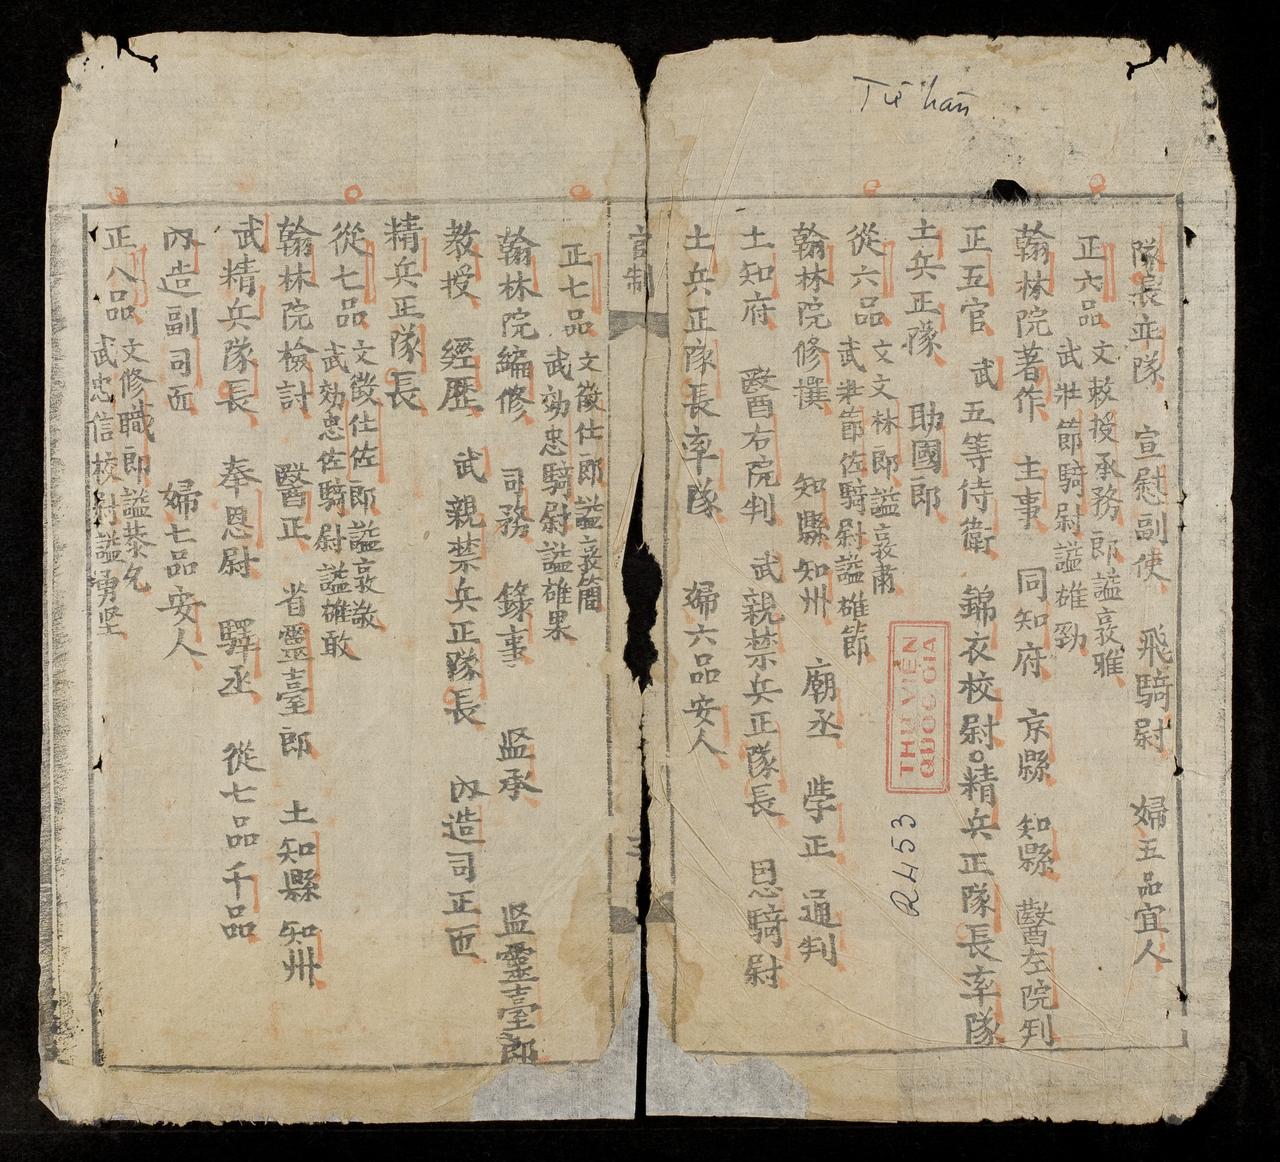 Tử hàn
隊長並隊　宣慰副使　飛騎尉　婦五品宜人
正六品
文敕授承務郎謚敦雅
武壯節騎尉謚雄勁
翰林院著作　主事　同知府　京縣　知縣　醫左院判
正五官　武五等侍衛　錦衣校尉○精兵正隊長率隊
土兵正隊　助國郎
從六品
文文林郎謚敦肅
武壯節佐騎尉謚雄節
翰林院修撰　知縣知州　廟丞　學正　通判
土知府　醫右院判　武親禁兵正隊長　恩騎尉
土兵正隊長率隊　婦六品安人
官制
三
正七品
文徵仕郎謚敦簡
武効忠騎尉謚雄果
翰林院編修　司務　錄事　监承　监靈臺郎
教授　經歷　武親禁兵正隊長　內造司正匠
精兵正隊長
從七品
文徵仕佐郎謚敦敏
武効忠佐騎尉謚雄敢
翰林院檢討　醫正　省靈臺郎　土知縣知州
武精兵隊長　奉恩尉　驛丞　從七品千品
內造副司匠　婦七品安人
正八品
文修職郎謚恭
武忠信校尉謚勇坚
THƯ VIỆN
QUỐC GIA
R.453